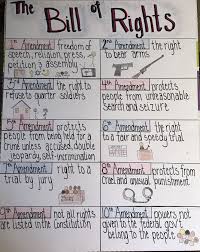 The
Bill of Rights
1st Amendment freedom of
speech, religion, press,
petition & assembly
2nd Amendment the right
to bear arms
3rd Amendment the right to
refuse to quarter soldiers
4th Amendment protects
people from unreasonable
search and seizure
5th Amendment protects
people from being held for a
crime unless accused, double
jeopardy, self-incrimination
6th Amendment the right
to a fair and speedy trial
7th Amendment right to a
trial by jury
8th Amendment protects from
cruel and unusual punishment
9th Amendment not all rights
are listed in the Constitution
10th Amendment powers not
given to the federal gov't
belong to the people